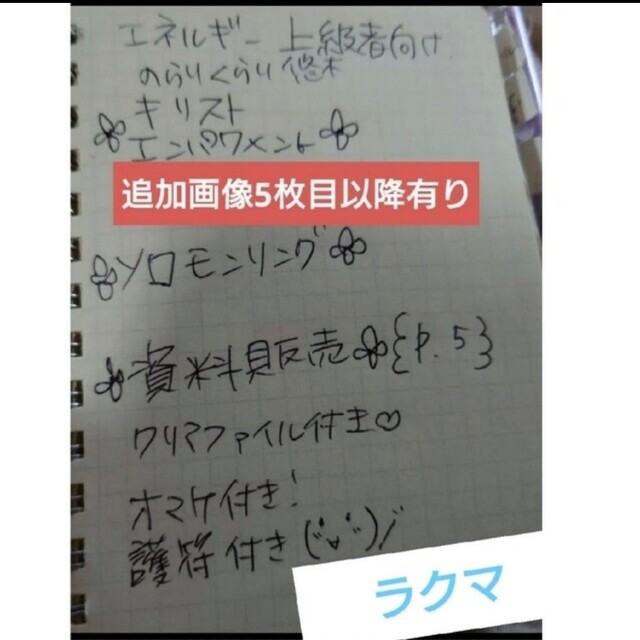 エネルギー 上級者向け
のらりくらり悠木
キリスト
エンパワメント
追加画像5枚目以降有り
ソロモンリング
資料販売 {P.5}
クリアファイル付き♡
オマケ付き!
護符付き
ラクマ